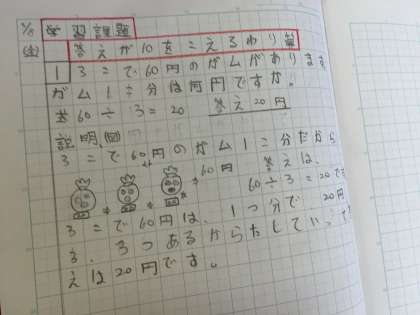 学習課題
答えが10をこえるわり算
1 3こで60円のガムがあります
ガム1こ分は何円ですか。
60÷3=20 答え20円
説明図
3こで60円のガム1こ分だから
60円 答えは、
60÷3=20で
3こで60円は、1つ分で20円
3つあるからたして
えは20円です。